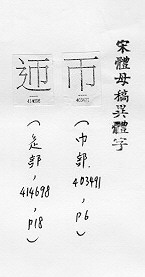 宋體母稿異體字
帀
403491
(巾部,403491,p6)
迊
414698
(辵部,414698,p18)